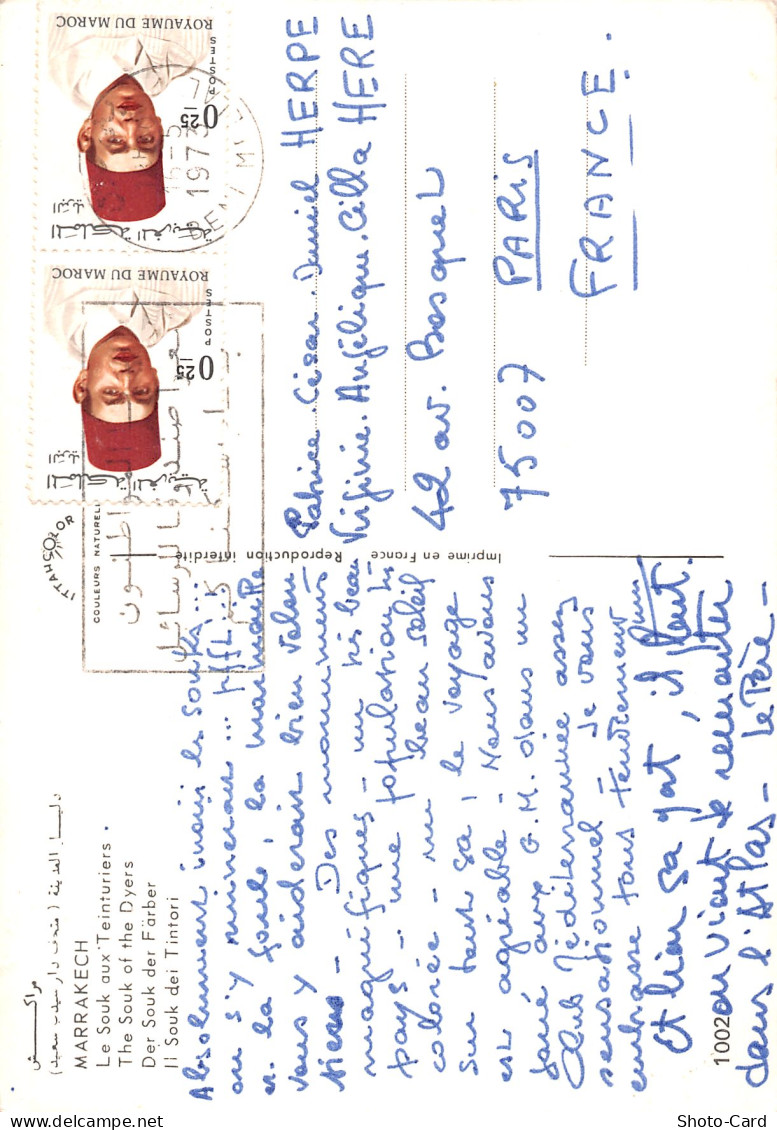 مراكش
MARRAKECH
Le Souk aux Teinturiers •
The Souk of the Dyers
Der Souk der Färber
Il Souk dei Tintori
Absolument inouïs les souks...
on s'y minerait... pfft...
et la foule, la marmaille
vous y aiderait bien volon
tiers - Des monuments
magnifiques - un très beau
pays - une population très
colorée - un beau soleil
sur tout ça, le voyage
est agréable - Nous avons
joué aux G.M. dans un
Club Méditerranée assez
sensationnel - Je vous
embrasse tous tendrement
Et bien ça y est, il faut
on vient de remonter
dans l'Atlas - le Père -
1002
ITTAH COLOR
COULEURS NATURELLES
Imprimé en France
Reproduction interdite
ROYAUME DU MAROC
POSTES
0,25
المملكة المغربية
البريد
ROYAUME DU MAROC
POSTES
0,25
المملكة المغربية
البريد
1973
Patrice. César. Daniel HERPE
Virginie. Angélique. Cilla HERE
42 av. Bosquet
75007 PARIS
FRANCE.
Shoto-Card